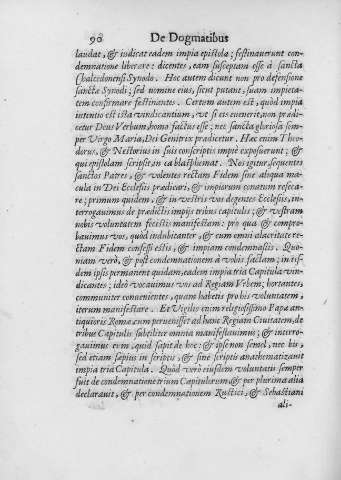 90 De Dogmatibus
laudat, & indicat eadem impia epistola; festinauerunt con-
demnatione liberare: dicentes, eam susceptam esse à sancta
Chalcedonensi Synodo. Hoc autem dicunt non pro defensione
sanctæ Synodi; sed nomine eius, sicut putant, suam impieta-
tem confirmare festinantes. Certum autem est, quòd impia
intentio est ista vindicantium, vt si eis euenerit, non prædi-
cetur Deus Verbum, homo factus esse; nec sancta gloriosa sem-
per Virgo Maria, Dei Genitrix prædicetur. Hæc enim Theo
dorus, & Nestorius in suis conscriptis impiè exposuerunt; &
qui epistolam scripsit, in ea blasphemat. Nos igitur, sequentes
sanctos Patres, & volentes rectam Fidem sine aliqua macu-
la in Dei Ecclesijs prædicari, & impiorum conatum reseca-
re; primum quidem, & in vestris vos degentes Ecclesijs, in-
terrogauimus de prædictis impijs tribus capitulis; & vestram
nobis voluntatem fecistis manifestam: pro qua & compro-
bauimus vos, quòd indubitanter, & cum omni alacritate re-
ctam Fidem confessi estis, & impiam condemnastis. Quo-
niam verò, & post condemnationem à vobis factam; in eis-
dem ipsis permanent quidam, eadem impia tria Capitula vin-
dicantes; ideò vocauimus vos ad Regiam Vrbem; hortantes,
communiter conuenientes, quam habetis probis voluntatem,
iterum manifestare. Et Vigilij enim religiosissimo Papa an-
tiquioris Romæ, cum peruenisset ad hanc Regiam Ciuitatem, de
tribus Capitulis subtiliter omnia manifestauimus; & interro-
gauimus eum, quid sapit de hoc: & ipse non semel, nec bis,
sed etiam sæpius in scriptis, & sine scriptis anathematizauit
impia tria Capitula. Quòd verò eiusdem voluntatis semper
fuit de condemnatione trium Capitulorum, & per plurima alia
declarauit, & per condemnationem Rustici, & Sebastiani
ali-